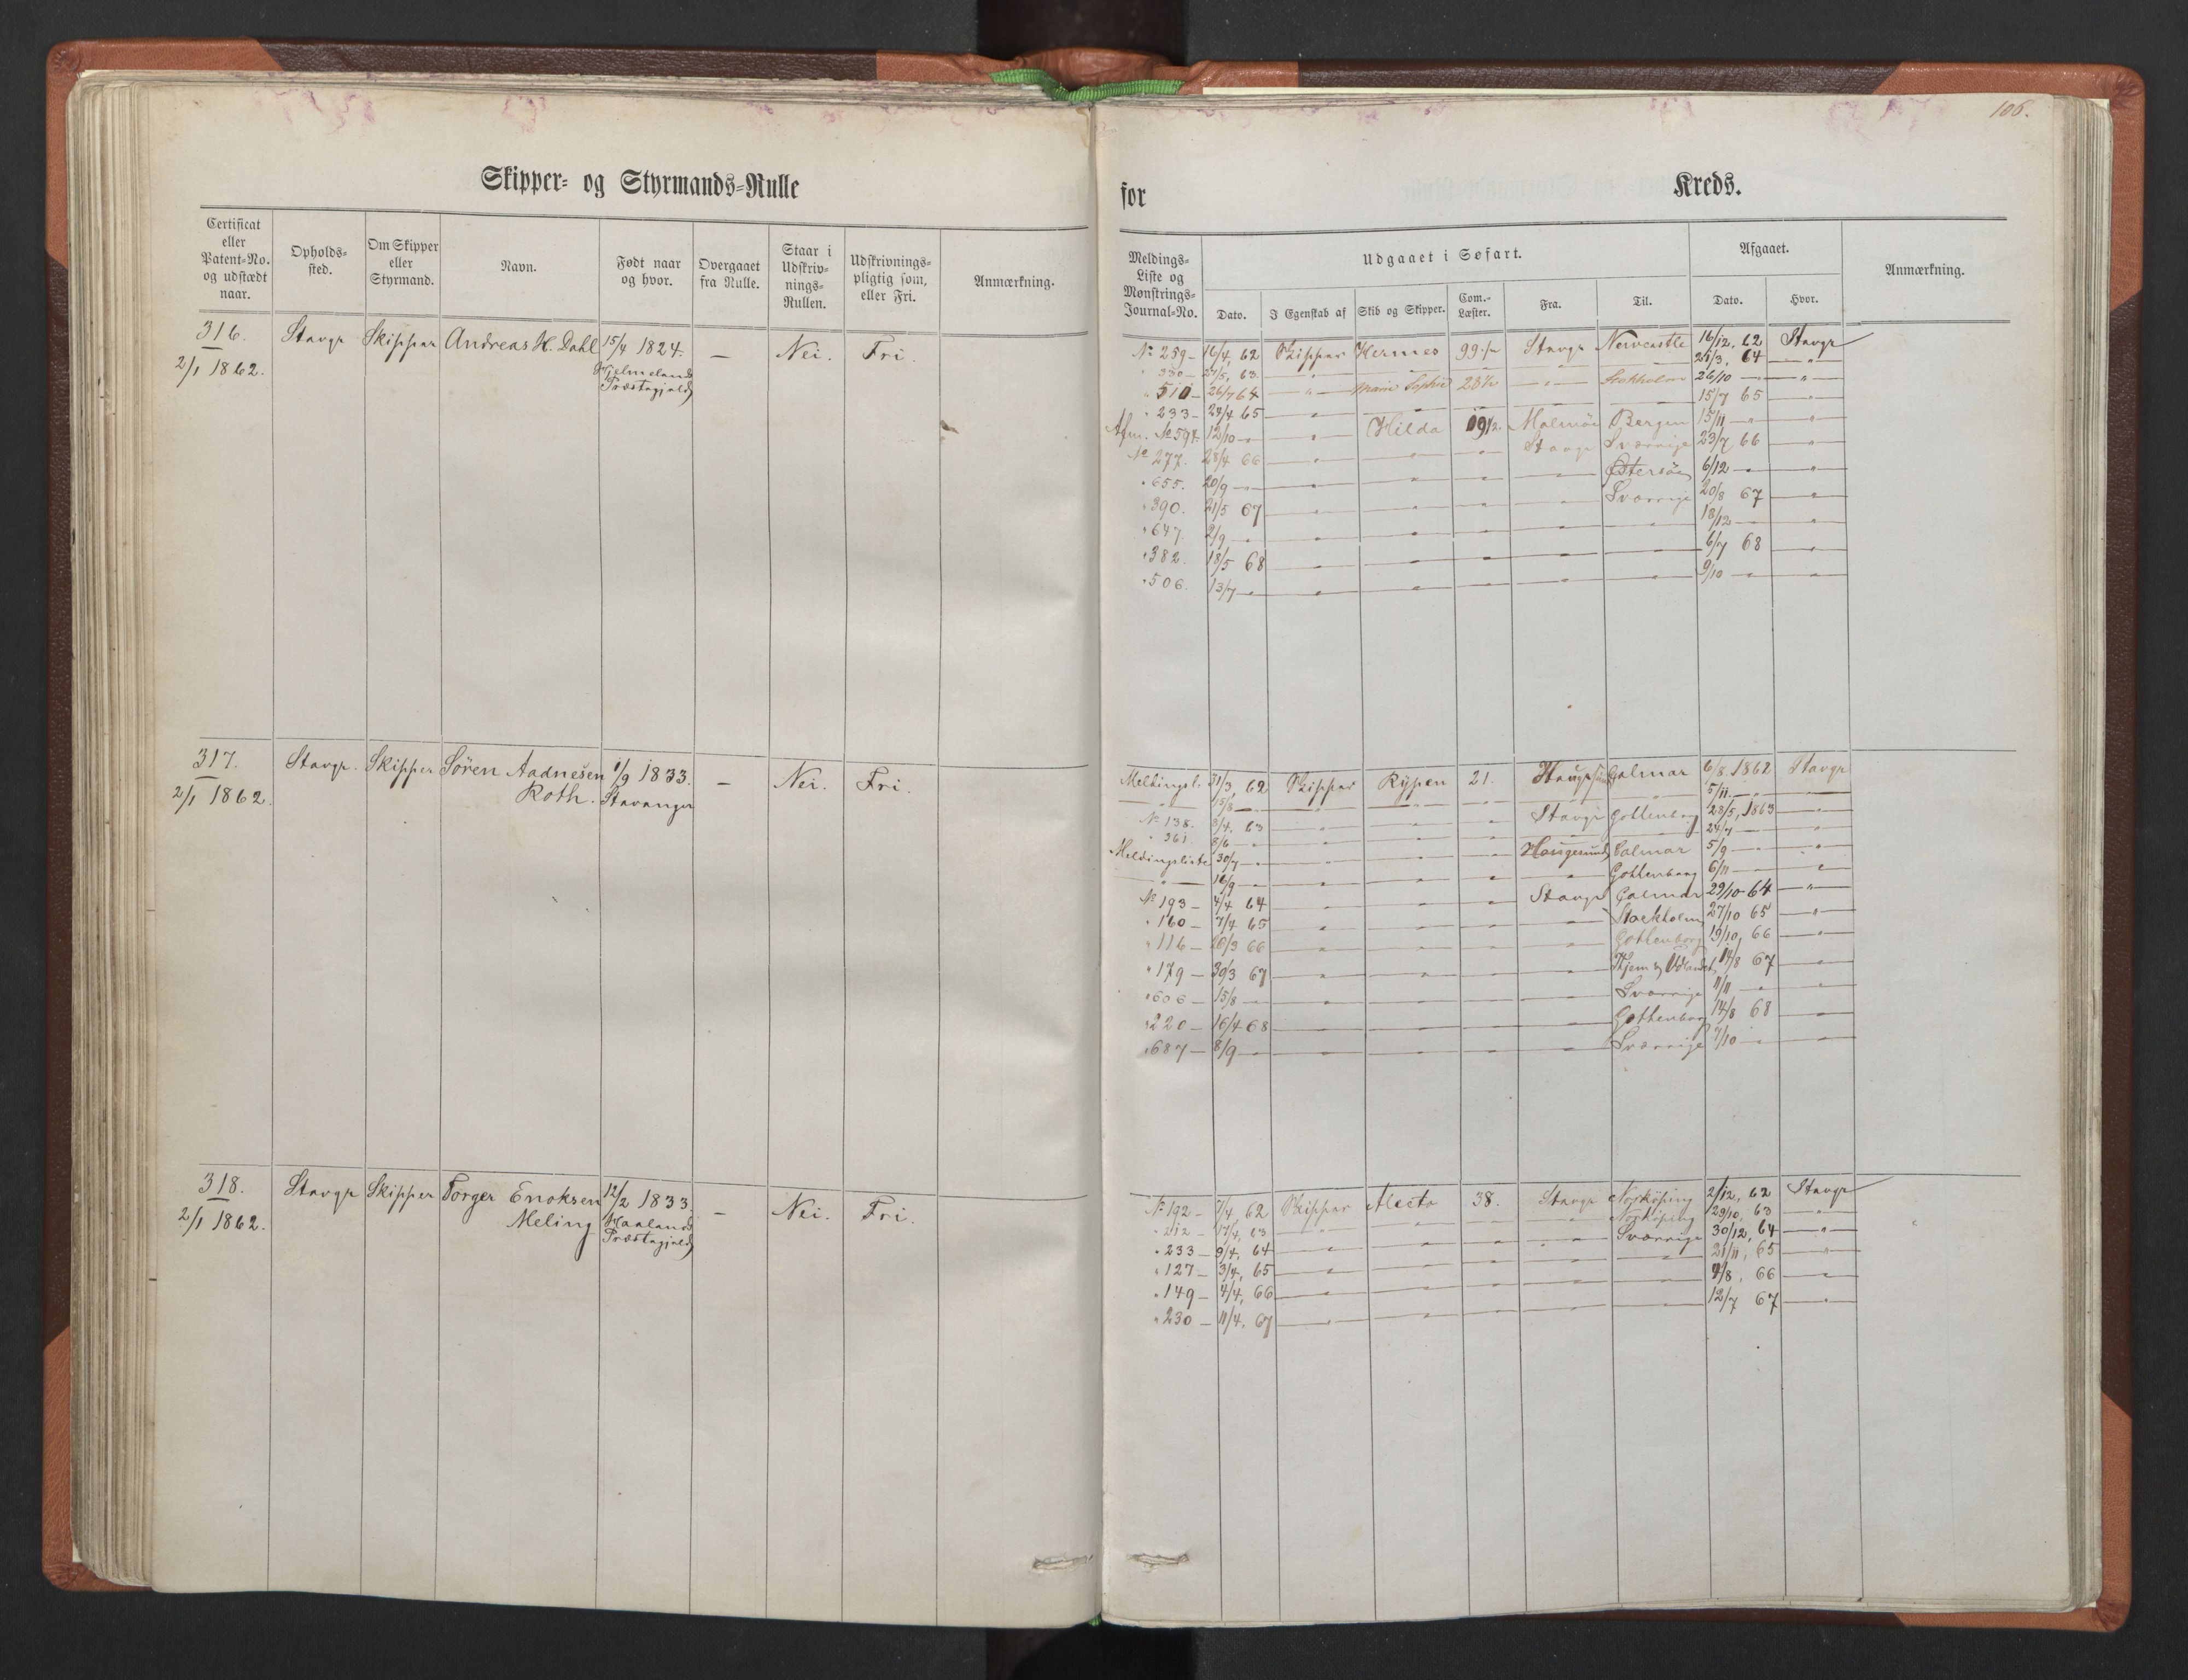 106.
Skipper- og Styrmands-Rulle
for Kreds.
Certificat eller Patent-No. og udstædt naar. | Opholds-sted. | Om Skipper eller Styrmand. | Navn. | Født naar og hvor. | Overgaaet fra Rulle. | Staar i Udskriv-nings-Rullen. | Udskrivnings-pligtig som, eller Fri. | Anmærkning.
Meldings-Liste og Mønstrings-Journal-No. | Udgaaet i Søfart. | Dato. | I Egenskab af | Skib og Skipper. | Com.-Læster. | Fra. | Til. | Afgaaet. | Dato. | Hvor. | Anmærkning.
316. Stavgr Skipper Andreas H. Dahl 15/4 1824. — Nei. Fri.
2/1 1862. Hjelmeland
Præstegjeld
No 259 — 16/4, 62 Skipper Hermes 99 Stavgr Newcastle 16/12, 62 Stavgr
" 330 — 27/5, 63. 64 — " —
" 510 — 26/7 64 — " — Marie Sophie — " — Stokholm 26/10 — "
" 233 — 65 — " — 15/7 65 — " —
Afm. No 597. 12/10 — " — " — Hilda Malmöe Bergen 15/11 — " — " —
No 277. 28/4 66 — " — " — " — Stavgr Sverrige 23/7 66 — " —
" 655. 20/9 — " — " — " — " — " — Østersöe 6/12 — " — " —
" 390. 21/5 67 — " — " — " — " — Sverrige 20/8 67 — " —
" 647. 2/9 — " — " — " — " — " — " — 18/12 — " — " —
" 382. 18/5 68 — " — " — " — " — " — 6/7 68 — " —
" 506. 13/7 — " — " — " — " — " — " — 9/10 — " — " —
317. Stavgr. Skipper Søren Aadnesen 1/9 1833. — Nei. Fri.
2/1 1862. Roth. Stavanger
Meldingsl. 31/3, 62 Skipper Rypen 21. Haugesund Calmar 6/8. 1862 Stavgr
— " — 15/8 — " — " — " — " — " — " — 5/11. — " — " —
No 138. 3/4. 63 — " — " — " — Stavgr Gottenborg 28/5, 1863 — " —
" 361 8/6 — " — " — " — " — " — " — 24/7 — " — " —
Meldingsliste 30/7 — " — " — " — " — Haugesund Calmar 5/9 — " — " —
— " — 16/9 — " — " — " — " — " — Gottenborg 6/11 — " — " —
No 193 — 4/4 64 — " — " — " — Stavgr Calmar 29/10 64 — " —
" 160 — 7/4 65 — " — " — " — " — Stockholm 27/10 65 — " —
" 116 — 26/3 66 — " — " — " — " — Gottenborg 19/10, 66 — " —
" 179 — 30/3 67 — " — " — " — " — Hjem og Udlandet 14/8 67 — " —
" 606 — 15/8 — " — " — " — " — " — Sverrige 11/11 — " — " —
" 220 — 16/4 68 — " — " — " — " — Gottenborg 14/8 68 — " —
" 687 — 8/9 — " — " — " — " — " — Sverrige 7/10 — " — " —
318. Stavgr Skipper Torger Enoksen 12/2 1833. — Nei. Fri.
2/1 1862. Meling Haalands
Præstegjeld
No 192 — 7/4, 62 Skipper Alecto 38. Stavgr Norköping 2/12, 62 Stavgr
" 212 — 17/4, 63 — " — " — " — " — Norköping 29/10, 63 — " —
" 233 — 9/4, 64 — " — " — " — " — Sverrige 30/12, 64 — " —
" 127 — 3/4, 65 — " — " — " — " — " — 21/11, 65 — " —
" 149 — 4/4, 66 — " — " — " — " — " — 66 — " —
" 230 — 11/4, 67 — " — " — " — " — " — 12/7 67 — " —